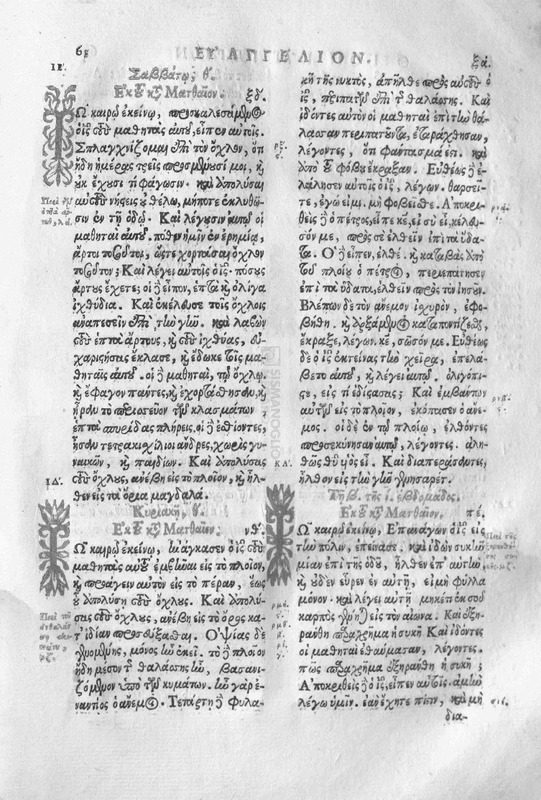 ΕΥΑΓΓΕΛΙΟΝ.
Σαββάτῳ, θ.
Ἐκ τοῦ κατὰ Ματθαῖον.
Τῷ καιρῷ ἐκείνῳ, προσκαλεσάμενος
ὁ ἰς τοὺς μαθητὰς αὐτοῦ, εἶπεν αὐτοῖς.
Σπλαγχνίζομαι ἐπὶ τὸν ὄχλον, ὅτι
ἤδη ἡμέρας τρεῖς προσμένουσί μοι, καὶ
οὐκ ἔχουσι τί φάγωσιν. καὶ ἀπολῦσαι
αὐτοὺς νήστεις οὐ θέλω, μήποτε ἐκλυθῶ-
σιν ἐν τῇ ὁδῷ. Καὶ λέγουσιν αὐτῷ οἱ
μαθηταὶ αὐτοῦ. πόθεν ἡμῖν ἐν ἐρημίᾳ,
ἄρτοι τοσοῦτοι, ὥστε χορτάσαι ὄχλον
τοσοῦτον; Καὶ λέγει αὐτοῖς ὁ ἰς. πόσους
ἄρτους ἔχετε; οἱ δὲ εἶπον, ἑπτὰ καὶ ὀλίγα
ἰχθύδια. Καὶ ἐκέλευσε τοῖς ὄχλοις
ἀναπεσεῖν ἐπὶ τὴν γῆν. καὶ λαβὼν
τοὺς ἑπτὰ ἄρτους, καὶ τοὺς ἰχθύας, εὐ-
χαριστήσας ἔκλασε, καὶ ἔδωκε τοῖς μα-
θηταῖς αὐτοῦ. οἱ δὲ μαθηταὶ, τῷ ὄχλῳ.
καὶ ἔφαγον πάντες, καὶ ἐχορτάσθησαν, καὶ
ἦραν τὸ περισσεῦον τῶν κλασμάτων
ἑπτὰ σπυρίδας πλήρεις. οἱ δὲ ἐσθίοντες,
ἦσαν τετρακισχίλιοι ἄνδρες, χωρὶς γυ-
ναικῶν, καὶ παιδίων. Καὶ ἀπολύσας
τοὺς ὄχλους, ἀνέβη εἰς τὸ πλοῖον, καὶ ἦλ-
θεν εἰς τὰ ὅρια μαγδαλά.
Κυριακῇ, θ.
Ἐκ τοῦ κατὰ Ματθαῖον.
Τῷ καιρῷ ἐκείνῳ, ἠνάγκασεν ὁ ἰς τοὺς
μαθητὰς αὐτοῦ ἐμβῆναι εἰς τὸ πλοῖον,
καὶ προάγειν αὐτὸν εἰς τὸ πέραν, ἕως
οὗ ἀπολύσῃ τοὺς ὄχλους. Καὶ ἀπολύ-
σας τοὺς ὄχλους, ἀνέβη εἰς τὸ ὄρος κα-
τ' ἰδίαν προσεύξασθαι. Ὀψίας δὲ
γενομένης, μόνος ἦν ἐκεῖ. τὸ δὲ πλοῖον
ἤδη μέσον τῆς θαλάσσης ἦν, βασανι-
ζόμενον ὑπὸ τῶν κυμάτων. ἦν γὰρ ἐ-
ναντίος ὁ ἄνεμος. Τετάρτῃ δὲ φυλα-
κῇ τῆς νυκτὸς, ἀπῆλθε πρὸς αὐτοὺς ὁ
ἰς, περιπατῶν ἐπὶ τῆς θαλάσσης. Καὶ
ἰδόντες αὐτὸν οἱ μαθηταὶ ἐπὶ τὴν θά-
λασσαν περιπατοῦντα, ἐταράχθησαν,
λέγοντες, ὅτι φάντασμά ἐστι. καὶ
ἀπὸ τοῦ φόβου ἔκραξαν. Εὐθέως δὲ ἐ-
λάλησεν αὐτοῖς ὁ ἰς, λέγων. θαρσεῖ-
τε, ἐγώ εἰμι. μὴ φοβεῖσθε. Ἀποκρι-
θεὶς δὲ ὁ πέτρος, εἶπε κε, εἰ σὺ εἶ, κέλευ-
σόν με, πρός σε ἐλθεῖν ἐπὶ τὰ ὕδα-
τα. Ὁ δὲ εἶπεν, ἐλθέ. καὶ καταβὰς ἀπὸ
τοῦ πλοίου ὁ πέτρος, περιεπάτησεν
ἐπὶ τὰ ὕδατα, ἐλθεῖν πρὸς τὸν ἰησοῦν.
Βλέπων δὲ τὸν ἄνεμον ἰσχυρὸν, ἐφο-
βήθη. καὶ ἀρξάμενος καταποντίζεσθαι,
ἔκραξε, λέγων. κε, σῶσόν με. Εὐθέως
δὲ ὁ ἰς ἐκτείνας τὴν χεῖρα, ἐπελά-
βετο αὐτοῦ, καὶ λέγει αὐτῷ. ὀλιγόπι-
στε, εἰς τί ἐδίστασας; Καὶ ἐμβάντων
αὐτῶν εἰς τὸ πλοῖον, ἐκόπασεν ὁ ἄνε-
μος. οἱ δὲ ἐν τῷ πλοίῳ, ἐλθόντες
προσεκύνησαν αὐτῷ, λέγοντες. ἀλη-
θῶς θῦ υἱὸς εἶ. Καὶ διαπεράσαντες,
ἦλθον εἰς τὴν γῆν γεννησαρέτ.
Τῇ β. τῆς ι. ἑβδομάδος.
Ἐκ τοῦ κατὰ Ματθαῖον. πέ.
Τῷ καιρῷ ἐκείνῳ, Ἐπανάγων ὁ ἰς εἰς
τὴν πόλιν, ἐπείνασε. καὶ ἰδὼν συκῆν
μίαν ἐπὶ τῆς ὁδοῦ, ἦλθεν ἐπ' αὐτὴν
καὶ οὐδὲν εὗρεν ἐν αὐτῇ, εἰ μὴ φύλλα
μόνον. καὶ λέγει αὐτῇ μηκέτι ἐκ σοῦ
καρπὸς γένηται εἰς τὸν αἰῶνα. Καὶ ἐξη-
ράνθη παραχρῆμα ἡ συκῆ. Καὶ ἰδόντες
οἱ μαθηταὶ ἐθαύμασαν, λέγοντες.
πῶς παραχρῆμα ἐξηράνθη ἡ συκῆ;
Ἀποκριθεὶς δὲ ὁ ἰς, εἶπεν αὐτοῖς. ἀμὴν
λέγω ὑμῖν. ἐὰν ἔχητε πίστιν, καὶ μὴ
δια-
SISMANOGLIO